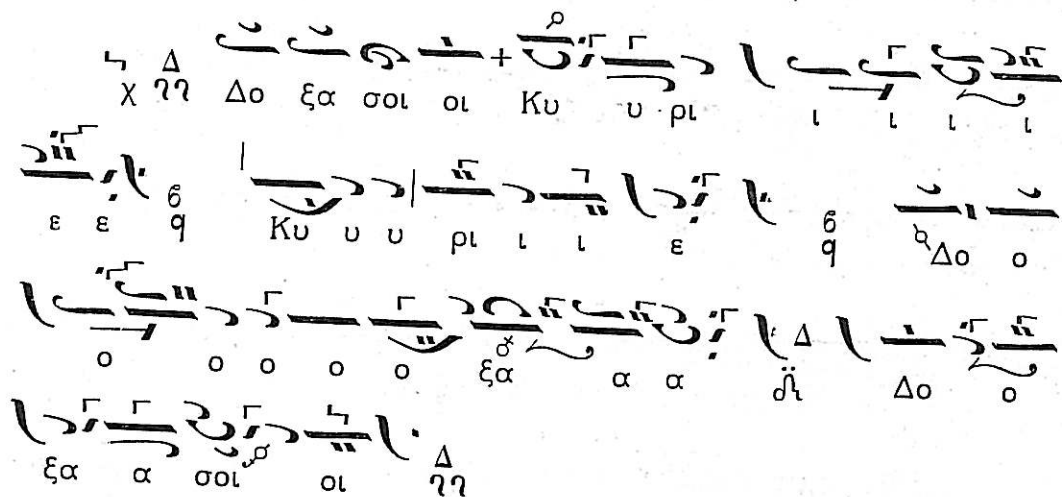 χ Δ Δο ξα σοι οι Κυ υ ρι ι ι ι ι
ε ε Κυ υ υ ρι ι ι ε Δο ο
ο ο ο ο ο ξα α α Δ Δο ο
ξα α σοι οι Δ